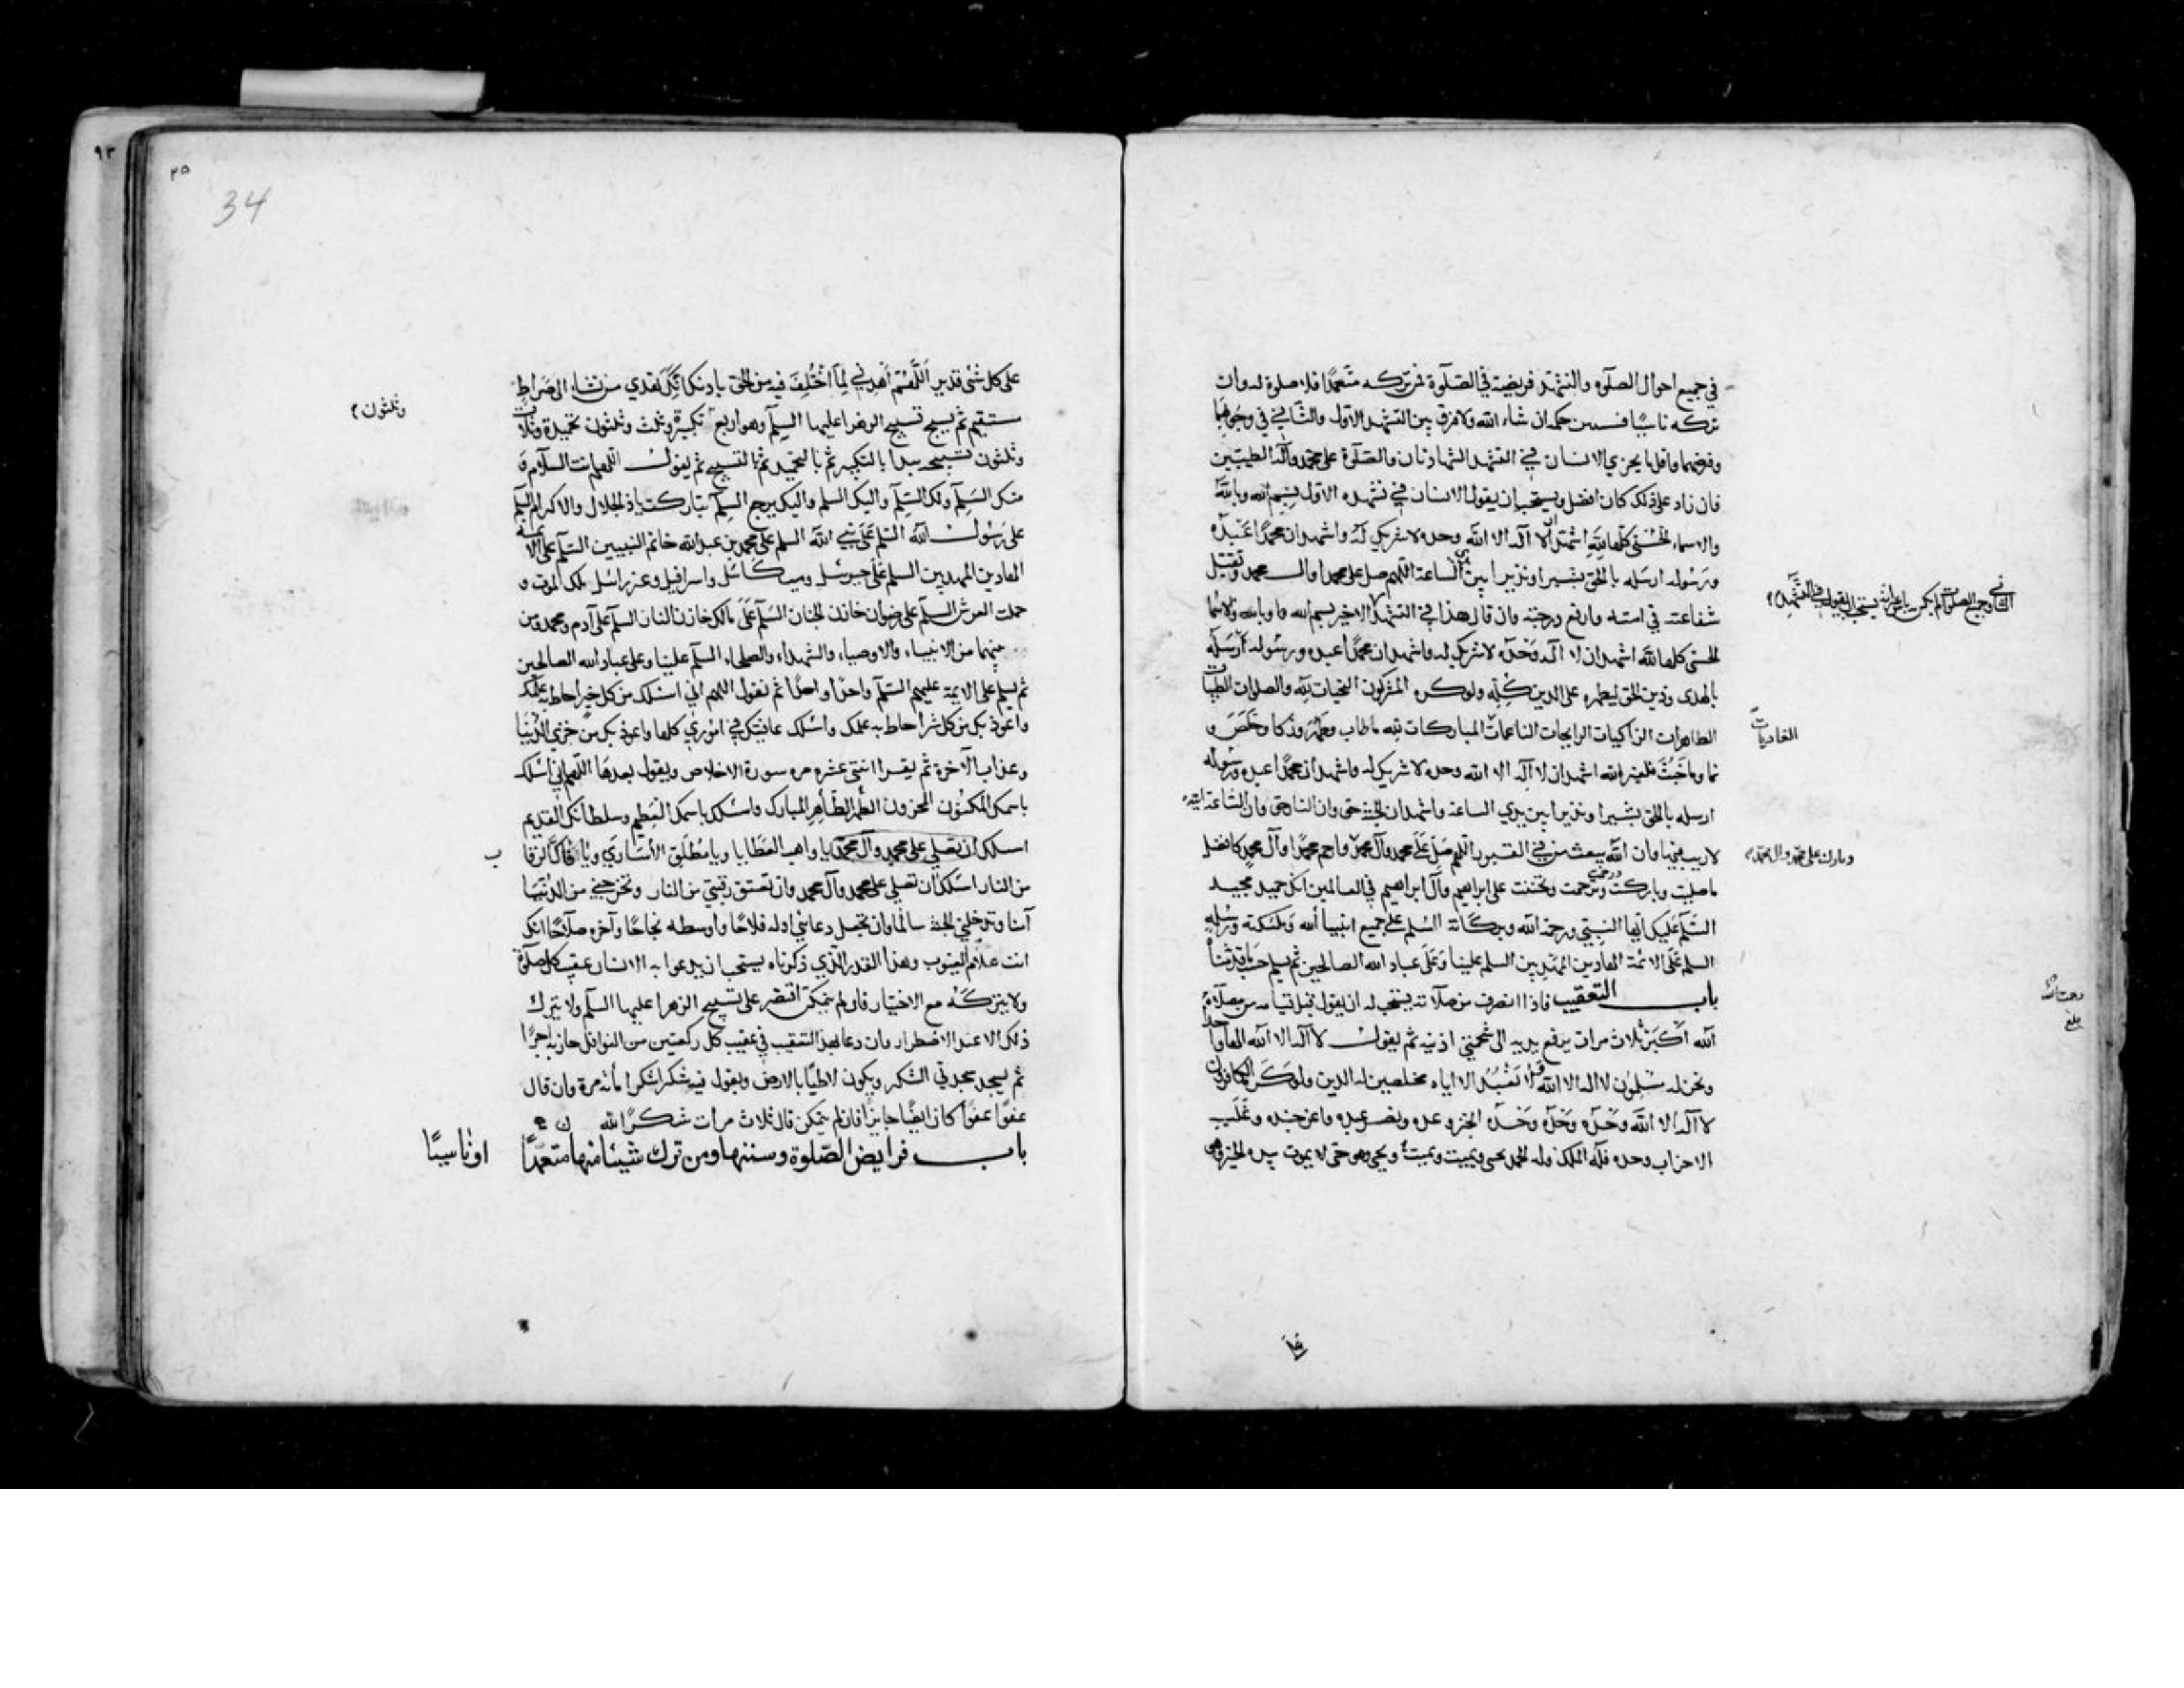 في جميع احوال الصلوة والتشهد فريضة في الصلوة فمن تركه متعمدا فلا صلوة له وان
تركه ناسيا قد بين حكمه ان شاء الله ولا فرق بين التشهد الاول والثاني في وجوبهما
وفرضهما واقل ما يجزي الانسان في التشهد الشهادتان والصلوة على محمد وآله الطيبين
فان زاد على ذلك كان افضل ويستحب ان يقول الانسان في تشهده الاول بسم الله وبالله
والاسماء الحسنى كلها لله اشهد ان لا اله الا الله وحده لا شريك له واشهد ان محمدا عبده
ورسوله ارسله بالحق بشيرا ونذيرا بين يدي الساعة اللهم صل على محمد وال محمد وتقبل
شفاعته في امته وارفع درجته وان قال هذا في التشهد الاخير بسم الله وبالله والاسما
الحسنى كلها لله اشهد ان لا اله وحده لا شريك له واشهد ان محمدا عبده ورسوله ارسله
بالهدى ودين الحق ليظهره على الدين كله ولو كره المشركون التحيات لله والصلوات الطيبات
الطاهرات الزاكيات الرايحات الناعمات المباركات لله ما طاب وطهر وزكا وخلص و
نما وما خبث فلغير الله اشهد ان لا اله الا الله وحده لا شريك له واشهد ان محمدا عبده ورسوله
ارسله بالحق بشيرا ونذيرا بين يدي الساعة واشهد ان الجنة حق وان النار حق وان الساعة اتية
لا ريب فيها وان الله يبعث من في القبور اللهم صل على محمد وآل محمد وارحم محمدا وآل محمد كافضل
ما صليت وباركت وترحمت وتحننت على ابراهيم وآل ابراهيم في العالمين انك حميد مجيد
السلم عليك ايها النبي ورحمة الله وبركاته السلم على جميع انبياء الله وملئكته ورسله
السلم على الائمة الهادين المهديين السلم علينا وعلى عباد الله الصالحين ثم يسلم حسب ما قدمناه
باب التعقيب فاذا انصرف من صلاته يستحب له ان يقول قبل قيامه من مصلاه
الله اكبر ثلاث مرات يرفع يديه الى شحمتي اذنيه ثم يقول لا اله الا الله الها واحدا
ونحن له مسلمون لا اله الا الله ولا نعبد الا اياه مخلصين له الدين ولو كره الكافرون
لا اله الا الله وحده وحده وحده انجز وعده ونصر عبده واعز جنده وغلب
الاحزاب وحده فله الملك وله الحمد يحيي ويميت ويميت ويحيي وهو حي لا يموت بيده الخير وهو
الغاديات
وبارك على محمد وال محمد
بلغ
34
٩٣
٢٥
على كل شئ قدير اللهم اهدني لما اختلف فيه من الحق باذنك انك تهدي من تشاء الى صراط
مستقيم ثم يسبح تسبيح الزهرا عليها السلم وهو اربع تكبيرة وثلث وثلثون تحميدة وثلاث
وثلثون تسبيحة يبدا بالتكبير ثم بالتحميد ثم بالتسبيح ثم يقول اللهم انت السلام و
منك السلم ولك السلم واليك السلم واليك يرجع السلم تباركت يا ذا الجلال والاكرام السلم
على رسول الله السلم على نبي الله السلم على محمد بن عبد الله خاتم النبيين السلم على الائمة
الهادين المهديين السلم على جبرئيل وميكائيل واسرافيل وعزرائيل ملك الموت و
حملت العرش السلم على رضوان خازن الجنان السلم على مالك خازن النار السلم على آدم ومحمد ومن
بينهما من الانبياء والاوصياء والشهداء والصلحاء السلم علينا وعلى عباد الله الصالحين
ثم يسلم على الايمة عليهم السلم واحدا واحدا ثم تقول اللهم اني اسئلك من كل خير احاط به علمك
واعوذ بك من كل شر احاط به علمك واسئلك عافيتك في اموري كلها واعوذ بك من خزي الدنيا
وعذاب الآخرة ثم يقرا اثنتى عشره مره سورة الاخلاص ويقول بعدها اللهم اني اسئلك
باسمك المكنون المخزون الطهر الطاهر المبارك واسئلك باسمك العظيم وسلطانك القديم
اسئلك ان تصلي على محمد وآل محمد يا واهب العطايا ويا مطلق الأسارى ويا فكاك الرقاب
من النار اسئلك ان تصلي على محمد وآل محمد وان تعتق رقبتي من النار وتخرجني من الدنيا
آمنا وتدخلني الجنة سالما وان تجعل دعائي اوله فلاحا واوسطه نجاحا وآخره صلاحا انك
انت علام الغيوب وهذا القدر الذي ذكرناه يستحب ان يدعوا به الانسان عقيب كل صلوة
ولا يتركه مع الاختيار فان لم يتمكن اقتصر على تسبيح الزهرا عليها السلم ولا يترك
ذلك الا عند الاضطرار وان دعا بهذا التعقيب في عقيب كل ركعتين من النوافل حاز به اجرا
ثم يسجد سجدتي الشكر ويكون لاطيا بالارض ويقول فيه شكرا شكرا مائة مرة وان قال
عفوا عفوا كان ايضا جايزا فان لم يتمكن قال ثلاث مرات شكرا لله
باب فرايض الصلوة وسننها ومن ترك شيئا منها متعمدا او ناسيا
وثلثون